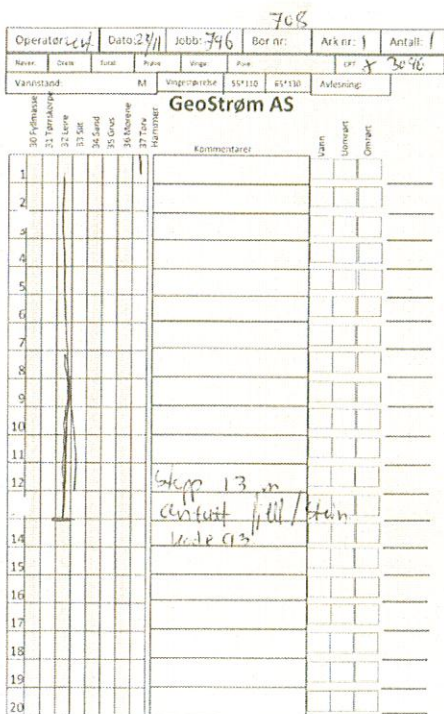 708
Operatør: Dato: 23/11 Jobb: 746 Bor nr: Ark nr: 1 Antall: 1
Naver: Dreie Total Prøve Vinge Pore CPT x 3046
Vannstand: M Vingestørrelse 55*110 65*130 Avlesning:
GeoStrøm AS
30 Fyllmasse
31 Tørrskorpe
32 Leire
33 Silt
34 Sand
35 Grus
36 Morene
37 Torv
Hammer
Kommentarer
Vann
Uomrørt
Omrørt
1
2
3
4
5
6
7
8
9
10
11
12 Stopp 13 m
antatt fjell / Stein
14 kode 93
15
16
17
18
19
20